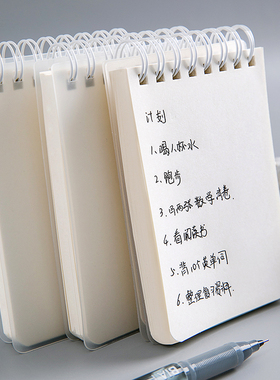 计划
1、喝八杯水
2、跑步
3、写两张数学卷
4、看阅读书
5、背105英单词
6、整理复习资料